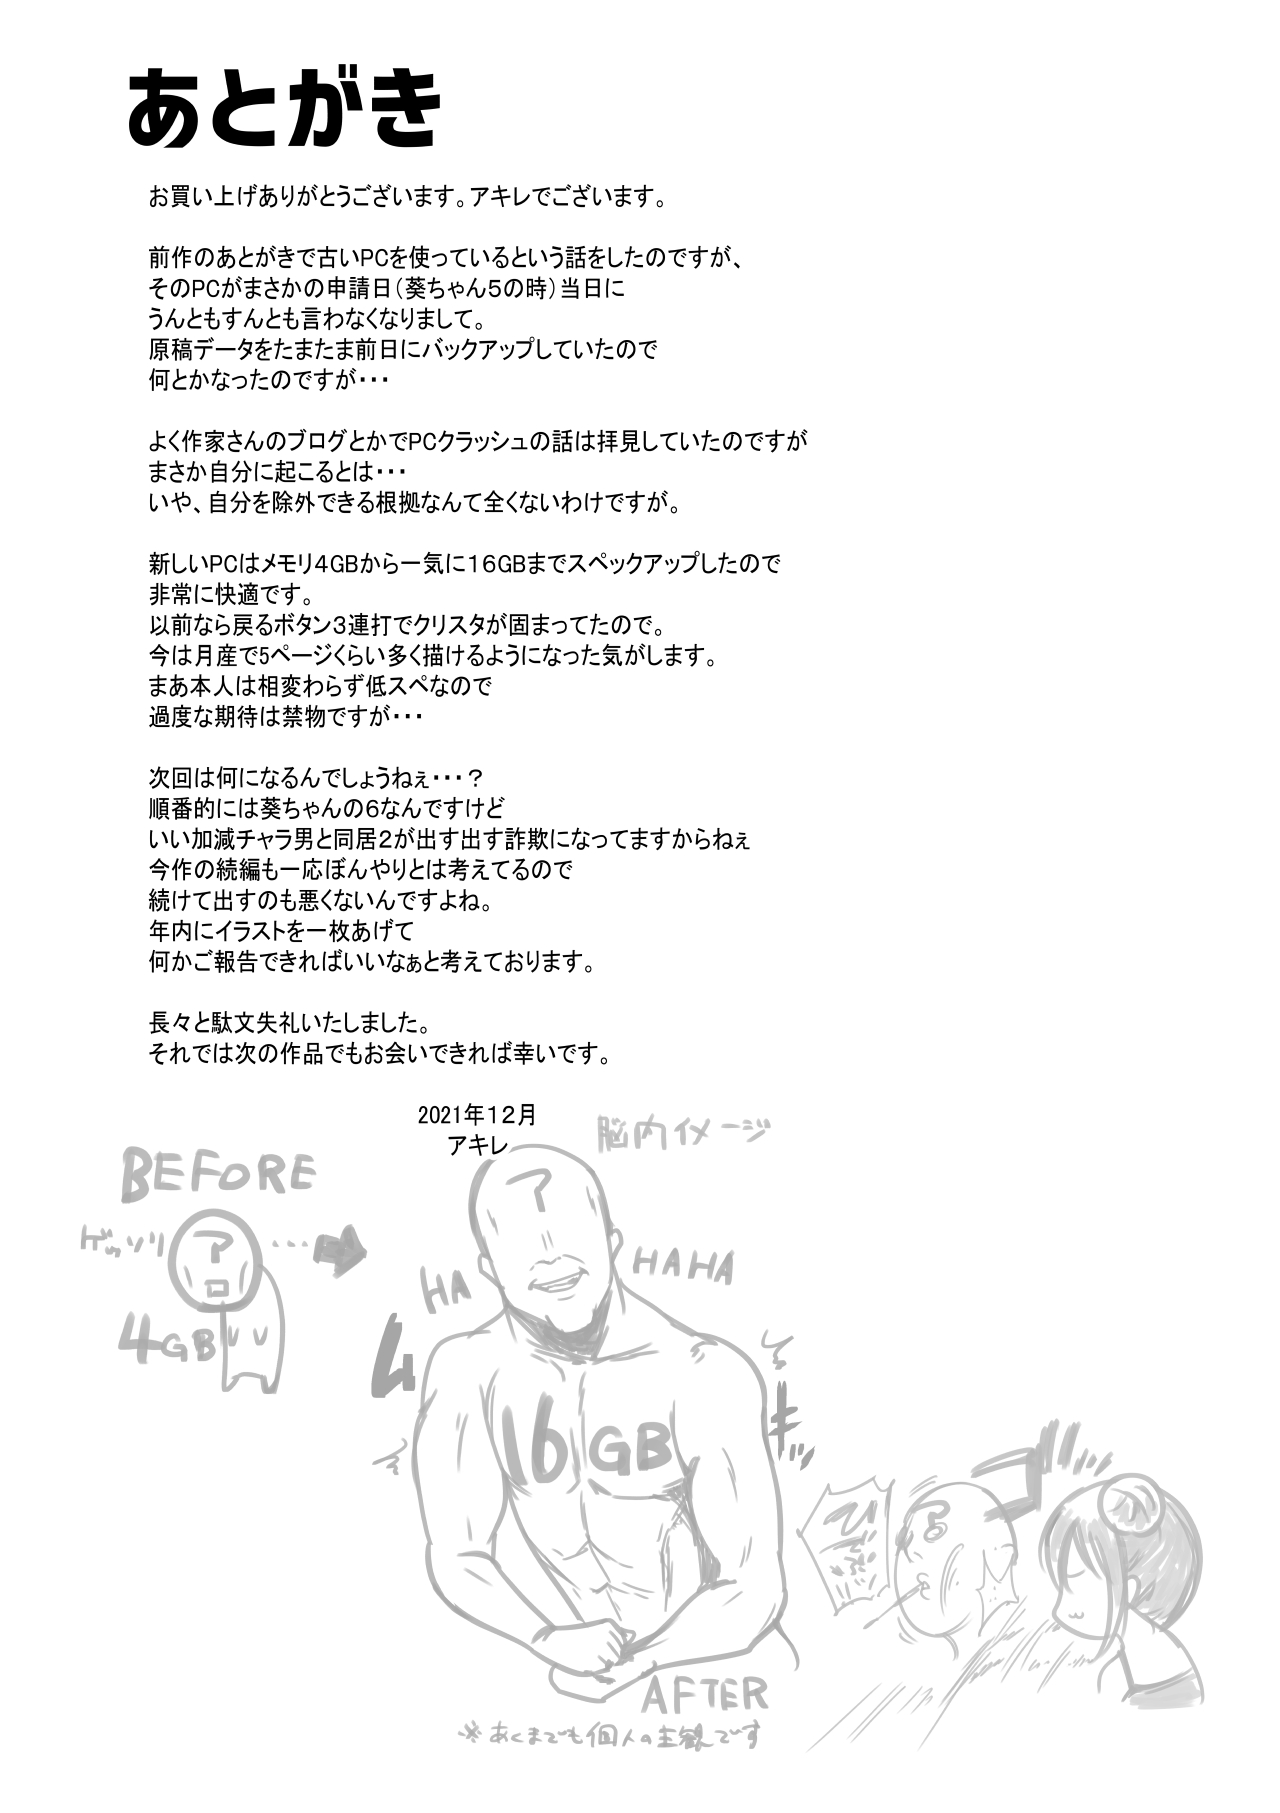 あとがき
お買い上げありがとうございます。アキレでございます。
前作のあとがきで古いPCを使っているという話をしたのですが、
そのPCがまさかの申請日（葵ちゃん5の時）当日に
うんともすんとも言わなくなりまして。
原稿データをたまたま前日にバックアップしていたので
何とかなったのですが・・・
よく作家さんのブログとかでPCクラッシュの話は拝見していたのですが
まさか自分に起こるとは・・・
いや、自分を除外できる根拠なんて全くないわけですが。
新しいPCはメモリ4GBから一気に16GBまでスペックアップしたので
非常に快適です。
以前なら戻るボタン3連打でクリスタが固まってたので。
今は月産で5ページくらい多く描けるようになった気がします。
まあ本人は相変わらず低スペなので
過度な期待は禁物ですが・・・
次回は何になるんでしょうねぇ・・・？
順番的には葵ちゃんの6なんですけど
いい加減チャラ男と同居2が出す出す詐欺になってますからねぇ
今作の続編も一応ぼんやりとは考えてるので
続けて出すのも悪くないんですよね。
年内にイラストを一枚あげて
何かご報告できればいいなぁと考えております。
長々と駄文失礼いたしました。
それでは次の作品でもお会いできれば幸いです。
2021年12月
アキレ
脳内イメージ
BEFORE
ゲッソリ
ア
…
4GB
ア
HA
HAHA
ム
キッ
16GB
AFTER
※あくまでも個人の主観です